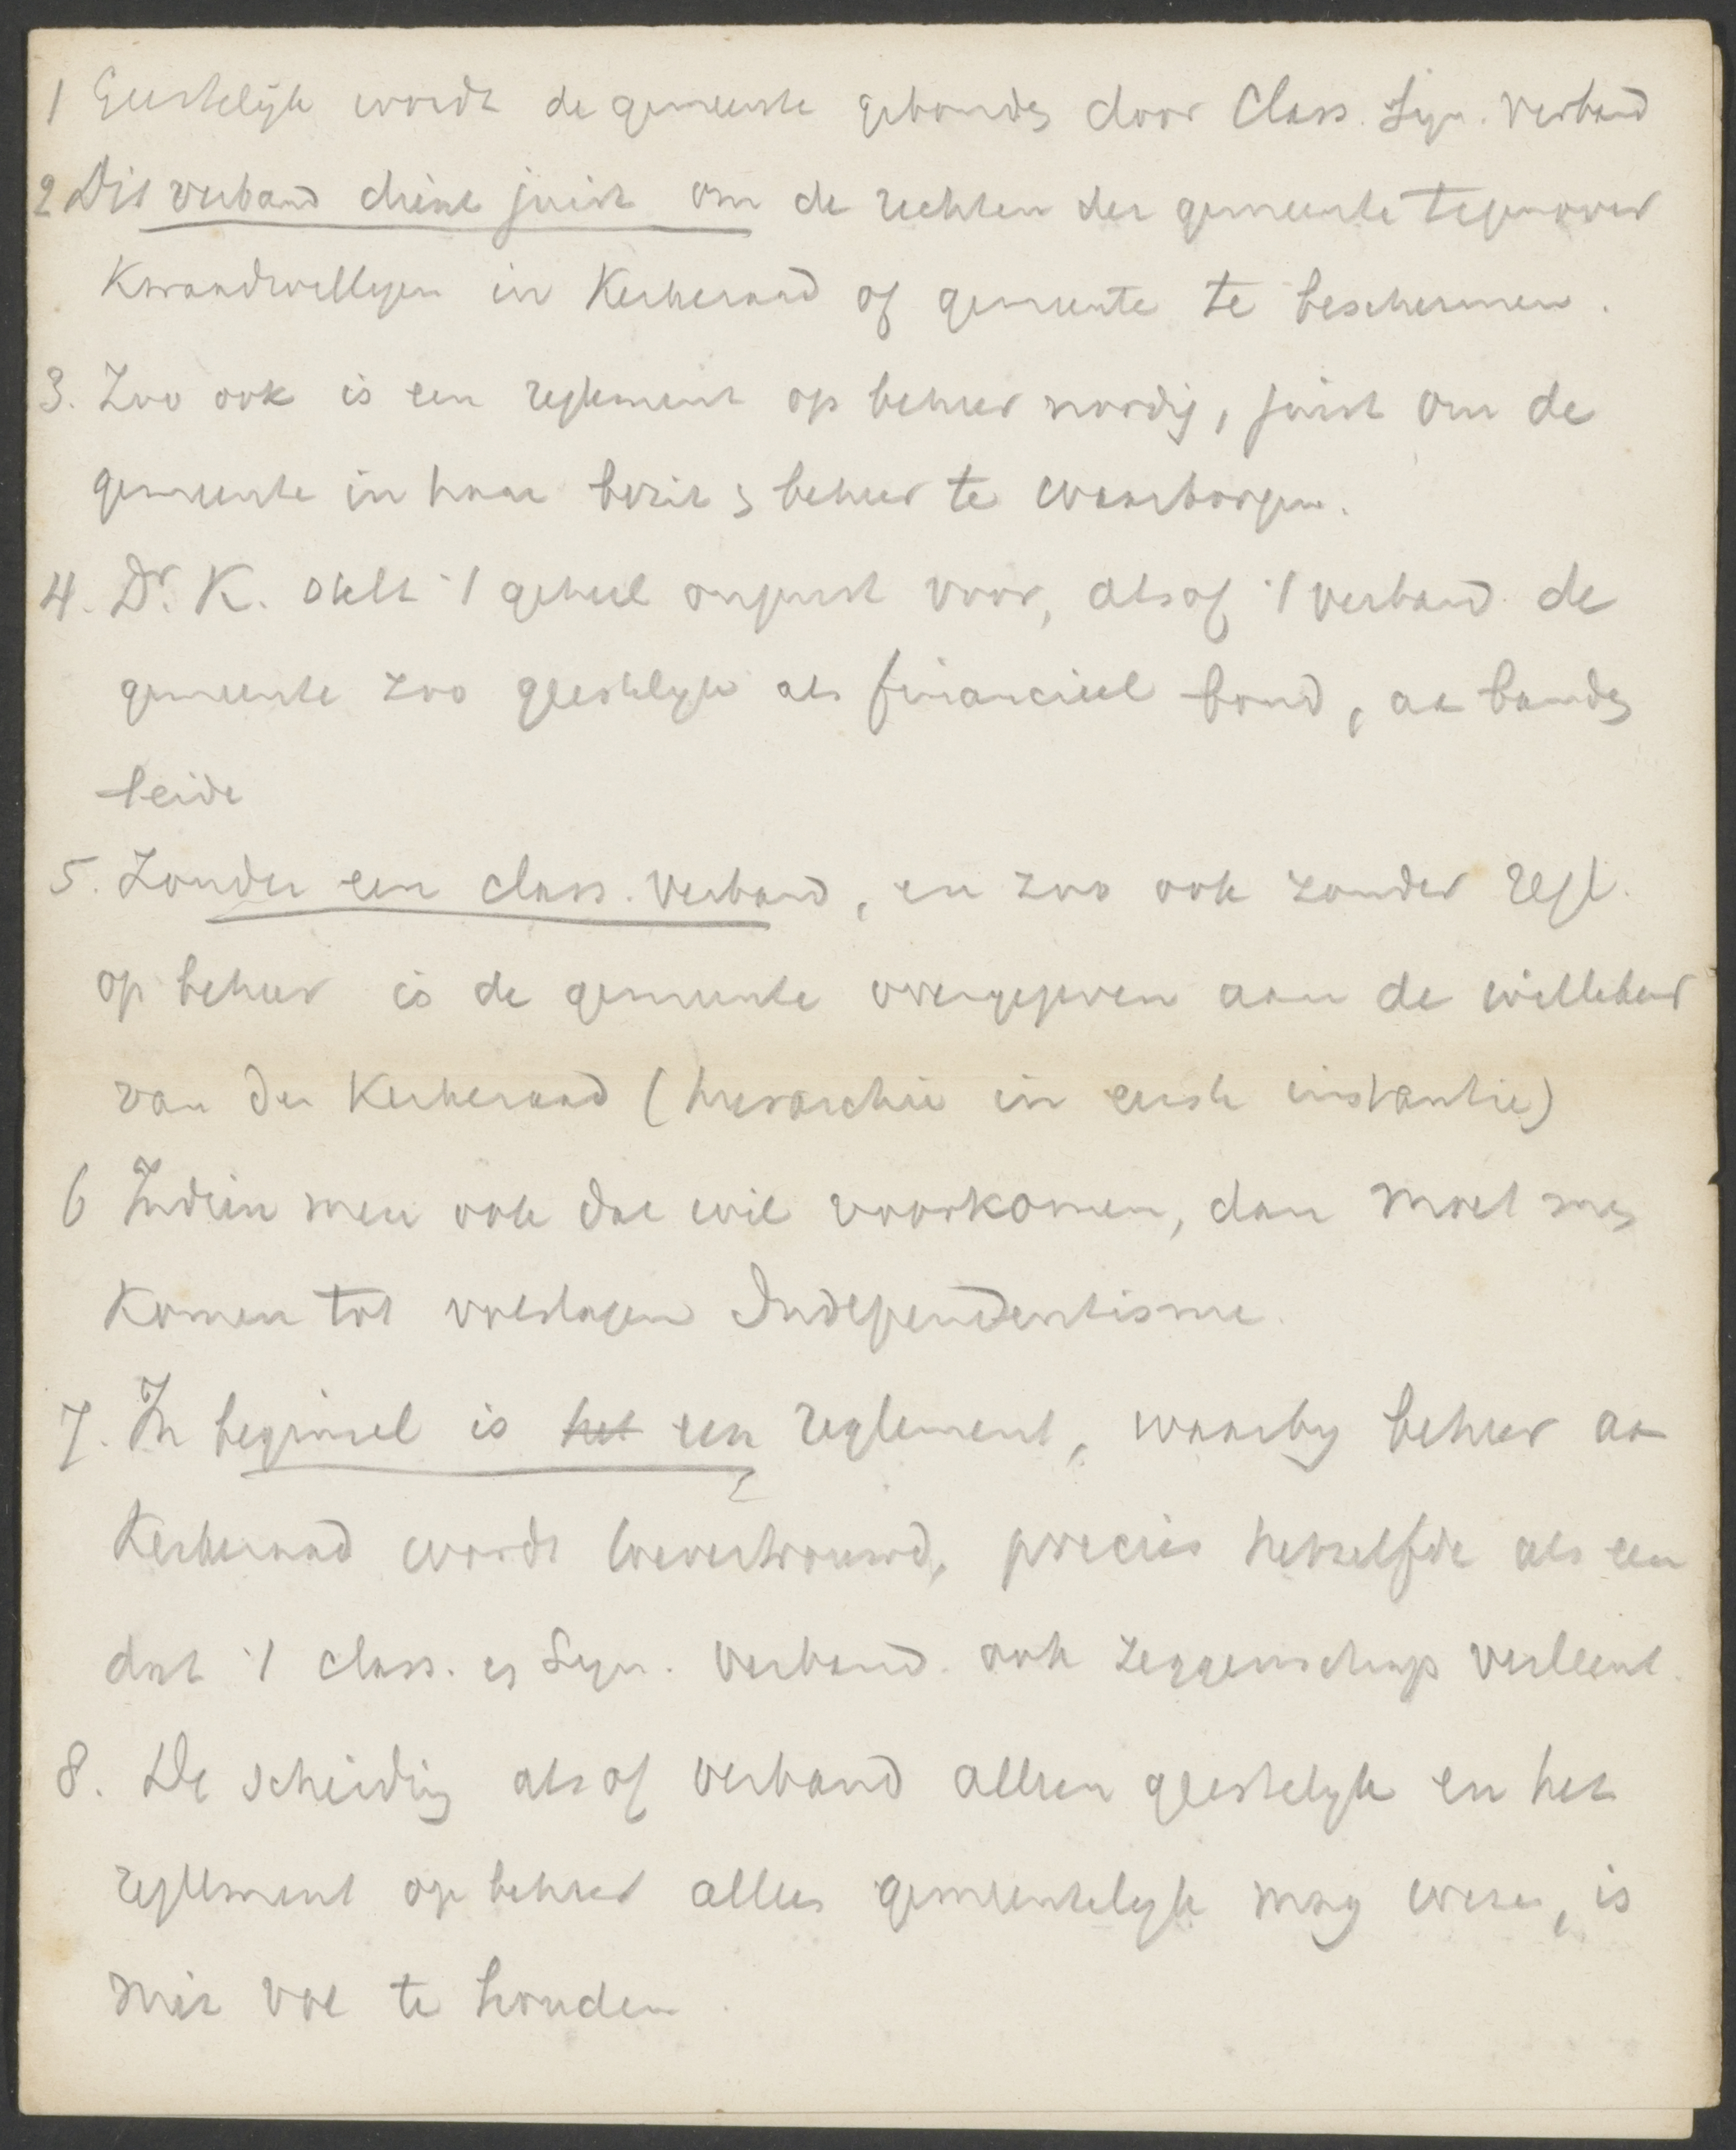 1 Geestelijk wordt de gemeente gebonden door Class. Syn. verband
2 Dit verband dient juist om de rechten der gemeente tegenover
Kwaadwilligen in Kerkeraad of gemeente te beschermen.
3. Zoo ook is een reglement op beheer nordig, juist om de
gemeente in haar bezit en beheer te waarborgen.
4. Dr. K. stelt 't geheel onjuist voor, alsof 't verband de
gemeente zoo geestelyk als financieel bond, aan banden
beide
5. Zonder een class. verband, en zoo ook zonder regl.
op beheer is de gemeente overgegeven aan de willekeur
van den Kerkeraad (hierarchie in eerste instantie)
6 Indien men ook dat wil voorkomen, dan moet men
komen tot volslagen Independentisme.
7. In beginsel is het een reglement, waarby beheer aan
Kerkeraad wordt toevertrouwd, precies hetzelfde als een
dat 't class. en Syn. verband ook zeggenschap verleent.
8. De scheiding alsof verband alleen geestelyk en het
reglement op beheer alles gemeentelyk mag wezen, is
niet vol te houden.